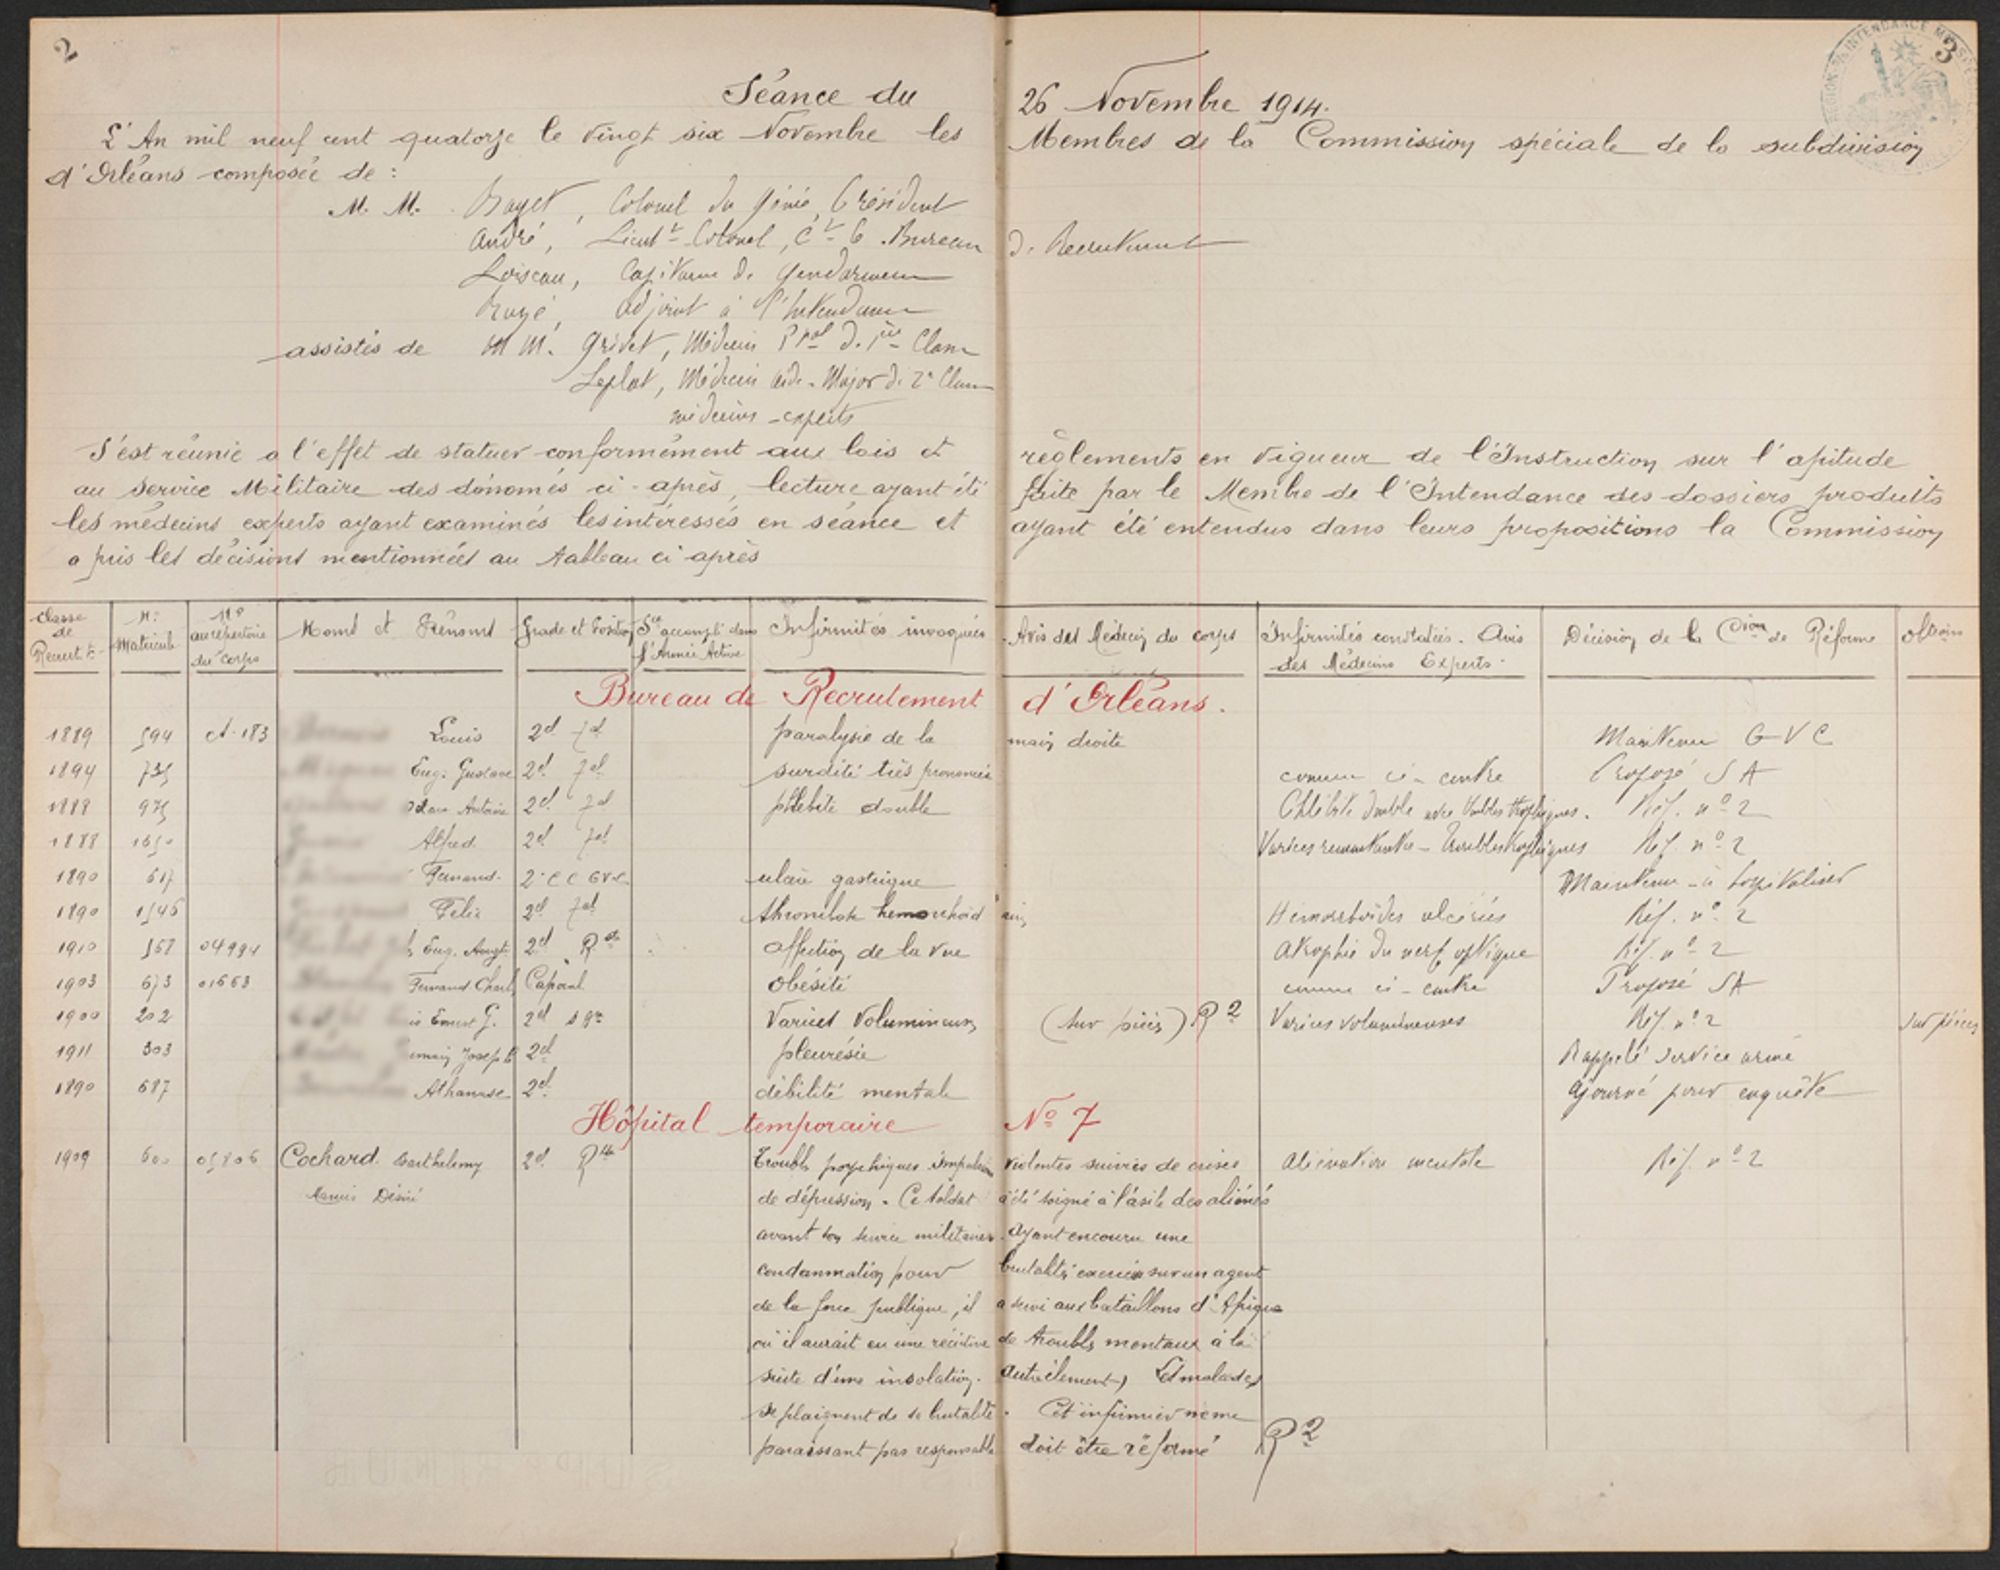 2
3
Séance du 26 Novembre 1914.
L'An mil neuf cent quatorze le vingt six Novembre les Membres de la Commission spéciale de la subdivision
d'Orléans composée de :
M. M. Bayet, Colonel du Génie, Président
André, Lieut.t Colonel, C.t le Bureau de Recrutement
Loiseau, Capitaine de Gendarmerie
adjoint à l'Intendance
assistés de M M. Grivet, Médecin P.pal de 1.ère Classe
Leplat, Médecin aide-Major de 2.e Classe
médecins-experts
S'est réunie a l'effet de statuer conformément aux lois et règlements en vigueur de l'Instruction sur l'apitude
au Service Militaire des dénomés ci-après, lecture ayant été faite par le Membre de l'Intendance des dossiers produits
les médecins experts ayant examinés les intéressés en séance et ayant été entendus dans leurs propositions la Commission
a pris les décisions mentionnées au tableau ci après
Classe de Recrut.t N.o Matricule N.o au répertoire du corps Noms et Prénoms Grade et Position S.ce accompli dans l'Armée Active Infirmités invoquées Avis des Médecin du corps Infirmités constatées. Avis des Médecins Experts. Décision de la C.ion de Réforme
Bureau de Recrutement d'Orléans.
1889 594 A.183 Louis 2.d paralysie de la main droite Maintenu GVC
1894 735 Eug. Gustave 2.d surdité très prononcée comme ci-contre Proposé SA
1888 975 Antoine 2.d phlébite double Phlébite double avec troubles trophiques. Réf. n.o 2
1888 1650 Alfred 2.d Varices - Troubles trophiques Réf. n.o 2
1890 617 Fernand 2.e C C GVC ulcère gastrique Maintenu - à hospitaliser
1890 1546 Félix 2.d Hémorrhoïdes ulcérées Réf. n.o 2
1910 568 04994 Eug. Augte 2.d R.te affection de la vue atrophie du nerf optique Réf. n.o 2
1903 673 01663 Fernand Charl. Caporal obésité comme ci-contre Proposé SA
1900 202 Ernest G. 2.d Varices volumineuses (sur pièces) R 2 Varices volumineuses Réf. n.o 2 sur pièces
1911 303 Joseph 2.d pleurésie Rappelé service armé
1890 687 Athanase 2.d débilité mentale Ajourné pour enquête
Hôpital temporaire N.o 7
1909 600 05806 Cochard Barthélemy 2.d R.te Troubles psychiques impulsions violentes suivies de crises aliénation mentale Réf. n.o 2
Désiré de dépression. Ce soldat a été soigné à l'asile des aliénés
avant son service militaire. Ayant encouru une
condamnation pour brutalités exercées sur un agent
de la force publique, il a servi aux bataillons d'Afrique
où il aurait eu une récidive de troubles mentaux à la
suite d'une insolation. Les malades
se plaignent de sa brutalité. Cet infirmier ne me
paraissant pas responsable doit être réformé R 2